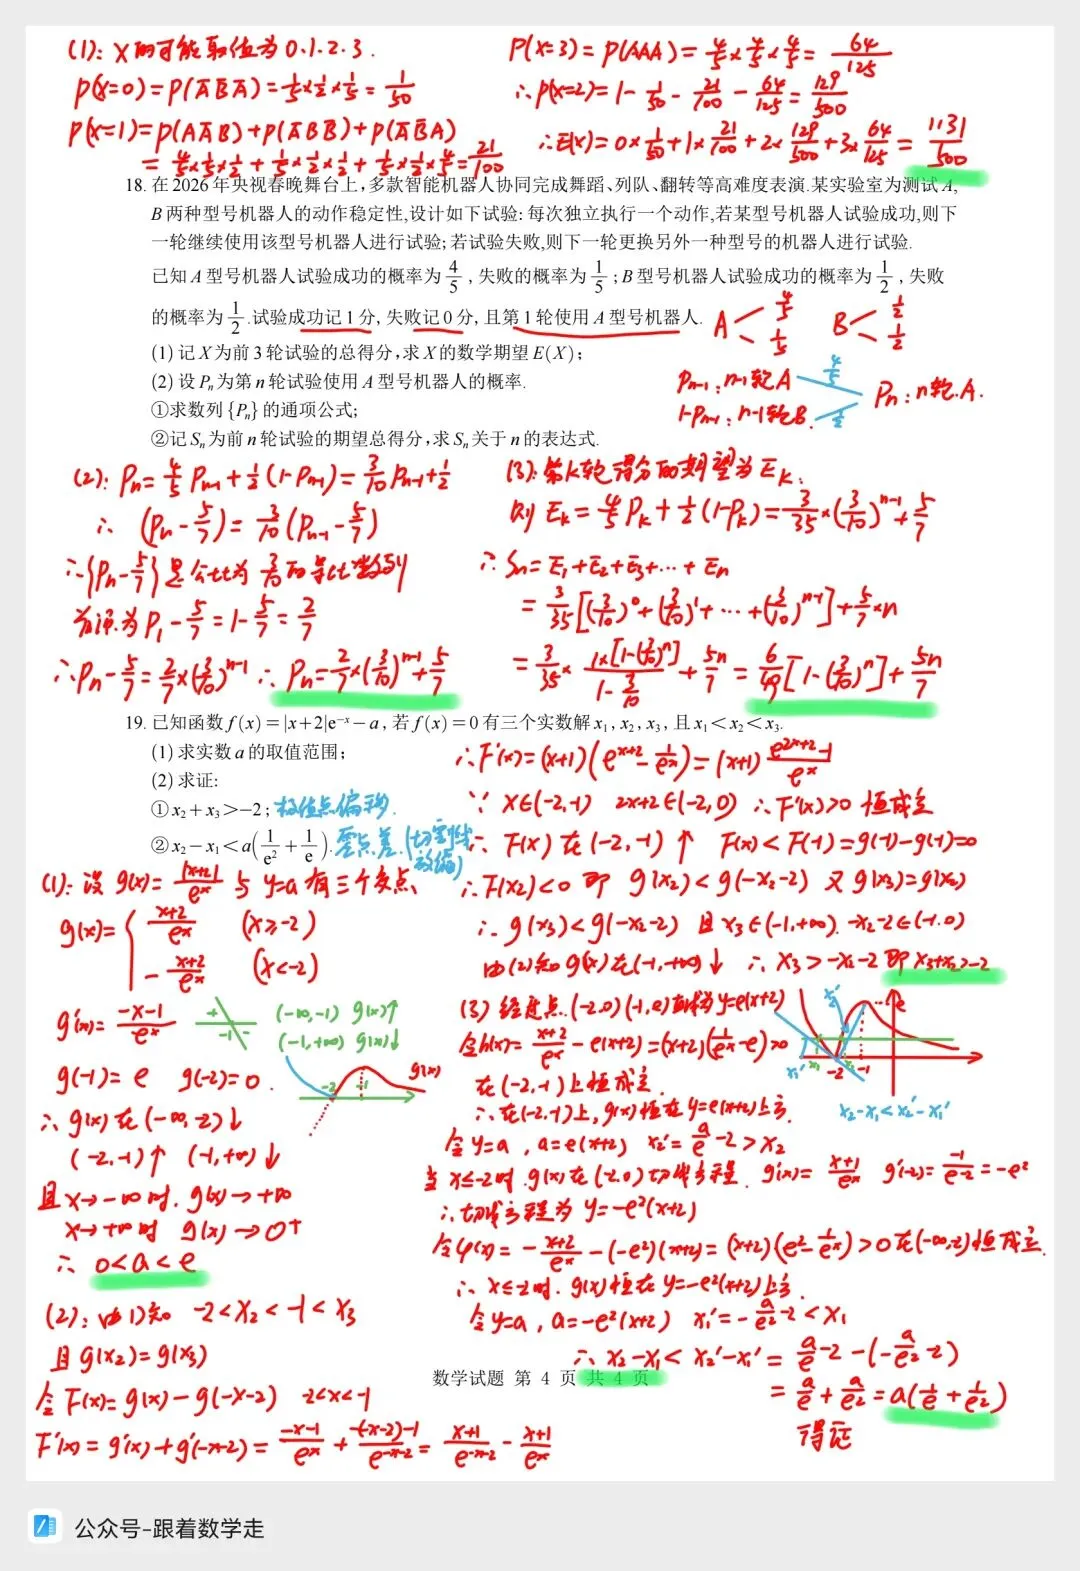 (1): X的可能取值为0.1.2.3.
P(X=0)=P(A̅B̅A̅)=1/5×1/2×1/5=1/50
P(X=1)=P(AA̅B̅)+P(A̅BB̅)+P(A̅B̅A)
=4/5×1/5×1/2+1/5×1/2×1/2+1/5×1/2×4/5=21/100
P(X=3)=P(AAA)=4/5×4/5×4/5=64/125
∴P(X=2)=1-1/50-21/100-64/125=129/500
∴E(X)=0×1/50+1×21/100+2×129/500+3×64/125=1131/500
18. 在2026年央视春晚舞台上,多款智能机器人协同完成舞蹈、列队、翻转等高难度表演.某实验室为测试A,
B两种型号机器人的动作稳定性,设计如下试验:每次独立执行一个动作,若某型号机器人试验成功,则下
一轮继续使用该型号机器人进行试验;若试验失败,则下一轮更换另外一种型号的机器人进行试验.
已知A型号机器人试验成功的概率为4/5,失败的概率为1/5;B型号机器人试验成功的概率为1/2,失败
的概率为1/2.试验成功记1分,失败记0分,且第1轮使用A型号机器人.
A 4/5 1/5 B 1/2 1/2
(1)记X为前3轮试验的总得分,求X的数学期望E(X);
(2)设Pₙ为第n轮试验使用A型号机器人的概率.
①求数列{Pₙ}的通项公式;
②记Sₙ为前n轮试验的期望总得分,求Sₙ关于n的表达式.
Pn-1:n-1轮A 4/5
1-Pn-1:n-1轮B. 1/2
Pn:n轮.A.
(2):Pn=4/5Pn-1+1/2(1-Pn-1)=3/10Pn-1+1/2
∴(Pn-5/7)=3/10(Pn-1-5/7)
∴{Pn-5/7}是公比为3/10的等比数列
首项为P1-5/7=1-5/7=2/7
∴Pn-5/7=2/7×(3/10)^(n-1) ∴Pn=2/7×(3/10)^(n-1)+5/7
(3):第k轮得分的期望为Ek.
则Ek=4/5Pk+1/2(1-Pk)=3/35×(3/10)^(n-1)+5/7
∴Sn=E1+E2+E3+…+En
=3/35[(3/10)^0+(3/10)^1+…+(3/10)^(n-1)]+5/7×n
=3/35×1×[1-(3/10)^n]/(1-3/10)+5n/7=6/49[1-(3/10)^n]+5n/7
19. 已知函数f(x)=|x+2|e⁻ˣ-a,若f(x)=0有三个实数解x₁,x₂,x₃,且x₁<x₂<x₃.
(1)求实数a的取值范围;
(2)求证:
①x₂+x₃>-2; 极值点偏移.
②x₂-x₁<a(1/e²+1/e). 零点差.(切割线放缩)
(1):设g(x)=|x+2|/e^x与y=a有三个交点
g(x)={(x+2)/e^x (x≥-2)
-(x+2)/e^x (x<-2)
g'(x)=(-x-1)/e^x + -1 - (-∞,-1) g(x)↑
(-1,+∞) g(x)↓
g(-1)=e g(-2)=0. -2 -1 g(x)
∴g(x)在(-∞,-2)↓
(-2,-1)↑ (-1,+∞)↓
且x→-∞时.g(x)→+∞
x→+∞时 g(x)→0+
∴0<a<e
(2):由(1)知 -2<x2<-1<x3
且g(x2)=g(x3)
令F(x)=g(x)-g(-x-2) -2<x<-1
F'(x)=g'(x)+g'(-x-2)=(-x-1)/e^x+(-(-x-2)-1)/e^(-x-2)=(x+1)/e^(-x-2)-(x+1)/e^x
∴F'(x)=(x+1)(e^(x+2)-1/e^x)=(x+1)(e^(2x+2)-1)/e^x
∵x∈(-2,-1) 2x+2∈(-2,0) ∴F'(x)>0恒成立
∴F(x)在(-2,-1)↑ F(x)<F(-1)=g(-1)-g(-1)=0
∴F(x2)<0即g(x2)<g(-x2-2)又g(x3)=g(x2)
∴g(x3)<g(-x2-2)且x3∈(-1,+∞).-x2-2∈(-1.0)
由(2)知g(x)在(-1,+∞)↓ ∴x3>-x2-2即x3+x2>-2
(3)经过点(-2,0)(-1,e)直线为y=e(x+2)
令h(x)=(x+2)/e^x-e(x+2)=(x+2)(1/e^x-e)>0
在(-2,-1)上恒成立.
∴在(-2,-1)上,g(x)恒在y=e(x+2)上方.
x2' e x1' x1 -2 -1
x2-x1<x2'-x1'
令y=a,a=e(x+2) x2'=a/e-2>x2
当x≤-2时.g(x)在(-2,0)切线方程.g'(x)=(x+1)/e^x g'(-2)=-1/e^-2=-e²
∴切线方程为y=-e²(x+2)
令φ(x)=-(x+2)/e^x-(-e²)(x+2)=(x+2)(e²-1/e^x)>0在(-∞,-2)恒成立.
∴x≤-2时.g(x)恒在y=-e²(x+2)上方
令y=a,a=-e²(x+2) x1'=-a/e²-2<x1
∴x2-x1<x2'-x1'=a/e-2-(-a/e²-2)
=a/e+a/e²=a(1/e+1/e²)
得证
数学试题 第 4 页 共 4 页
公众号-跟着数学走